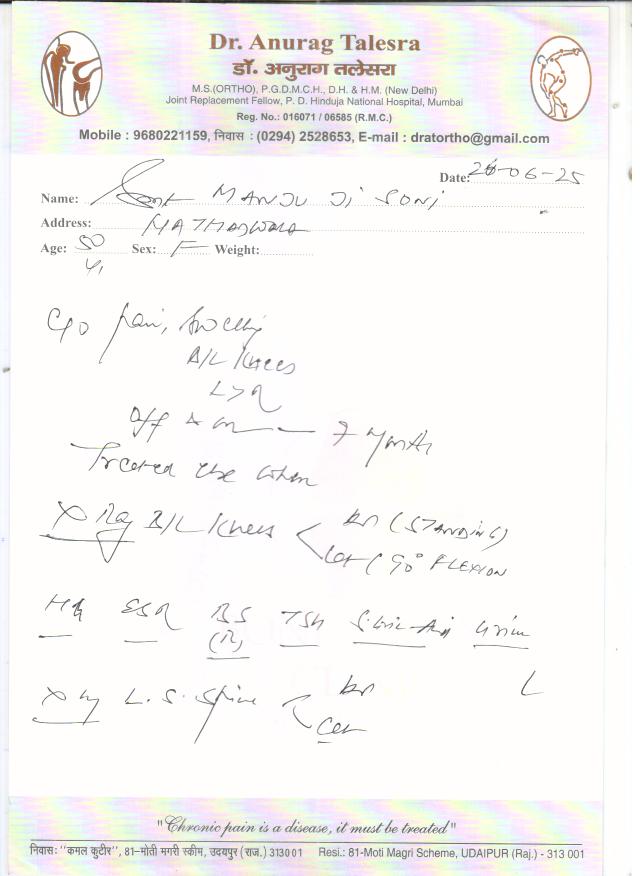 Dr. Anurag Talesra
डॉ. अनुराग तलेसरा
M.S.(ORTHO), P.G.D.M.C.H., D.H. & H.M. (New Delhi)
Joint Replacement Fellow, P. D. Hinduja National Hospital, Mumbai
Reg. No.: 016071 / 06585 (R.M.C.)
Mobile : 9680221159, निवास : (0294) 2528653, E-mail : dratortho@gmail.com
Date: 26-06-25
Name: Smt MANJU Ji SONI
Address:
Age: 50 Sex: F Weight:
Y
C/o pain, Swelling
B/L Knees
L>R
Off & on 7 month
Treated else where
X Ray B/L Knees (STANDING)
Lat (90° FLEXION
Hb ESR BS TSH S. Uric Acid Urine
(R)
X Ray L.S. Spine
"Chronic pain is a disease, it must be treated"
निवास: "कमल कुटीर", 81-मोती मगरी स्कीम, उदयपुर (राज.) 313001 Resi.: 81-Moti Magri Scheme, UDAIPUR (Raj.) - 313 001